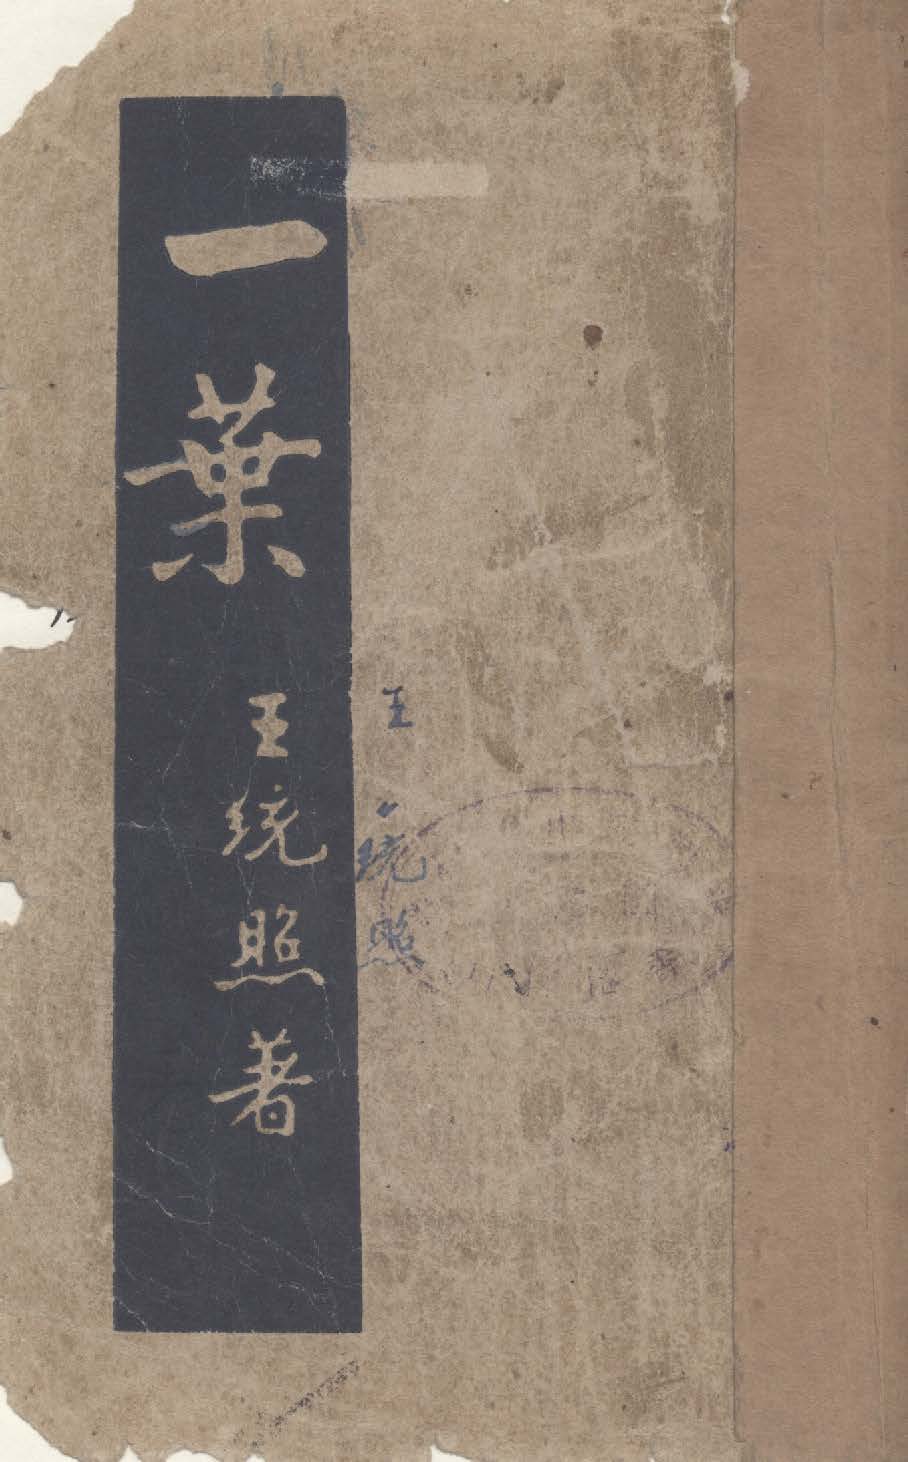 一葉
王统照著
王统照